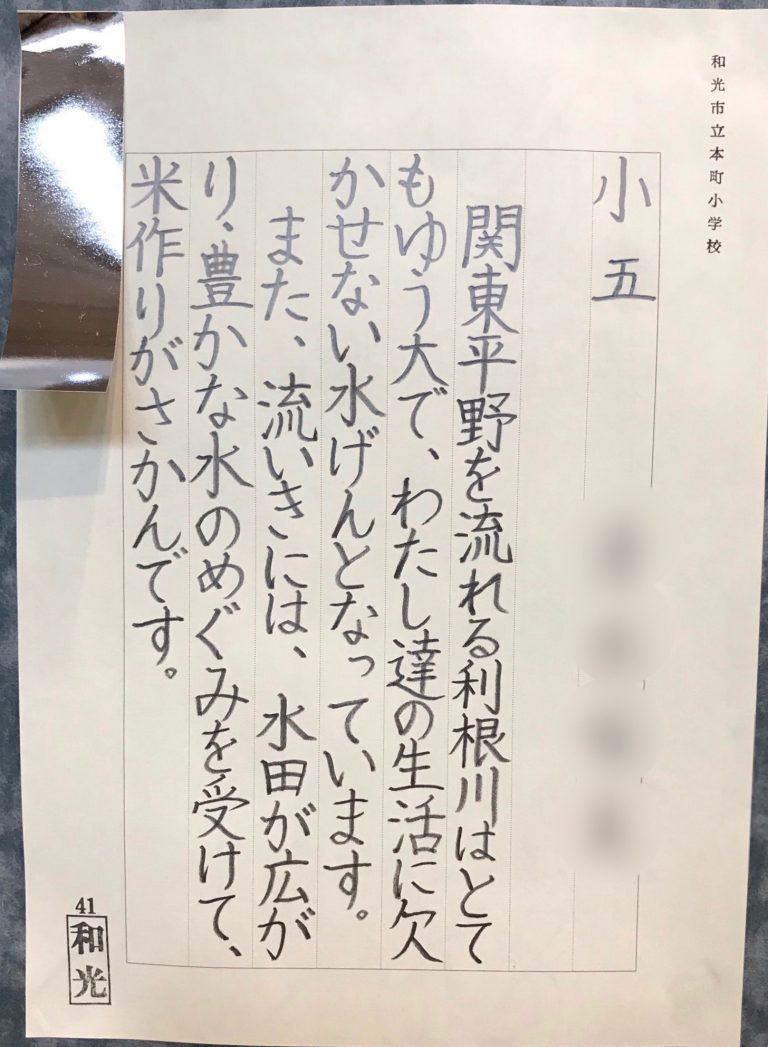 和光市立本町小学校
小五
関東平野を流れる利根川はとて
もゆう大で、わたし達の生活に欠
かせない水げんとなっています。
また、流いきには、水田が広が
り、豊かな水のめぐみを受けて、
米作りがさかんです。
41
和光